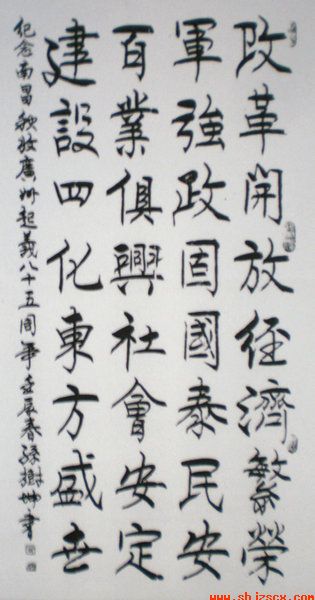 改革開放經濟繁榮
軍強政固國泰民安
百業俱興社會安定
建設四化東方盛世
紀念南昌秋收廣州起義八十五周年壬辰春孫樹坤書
www.shjzscx.com